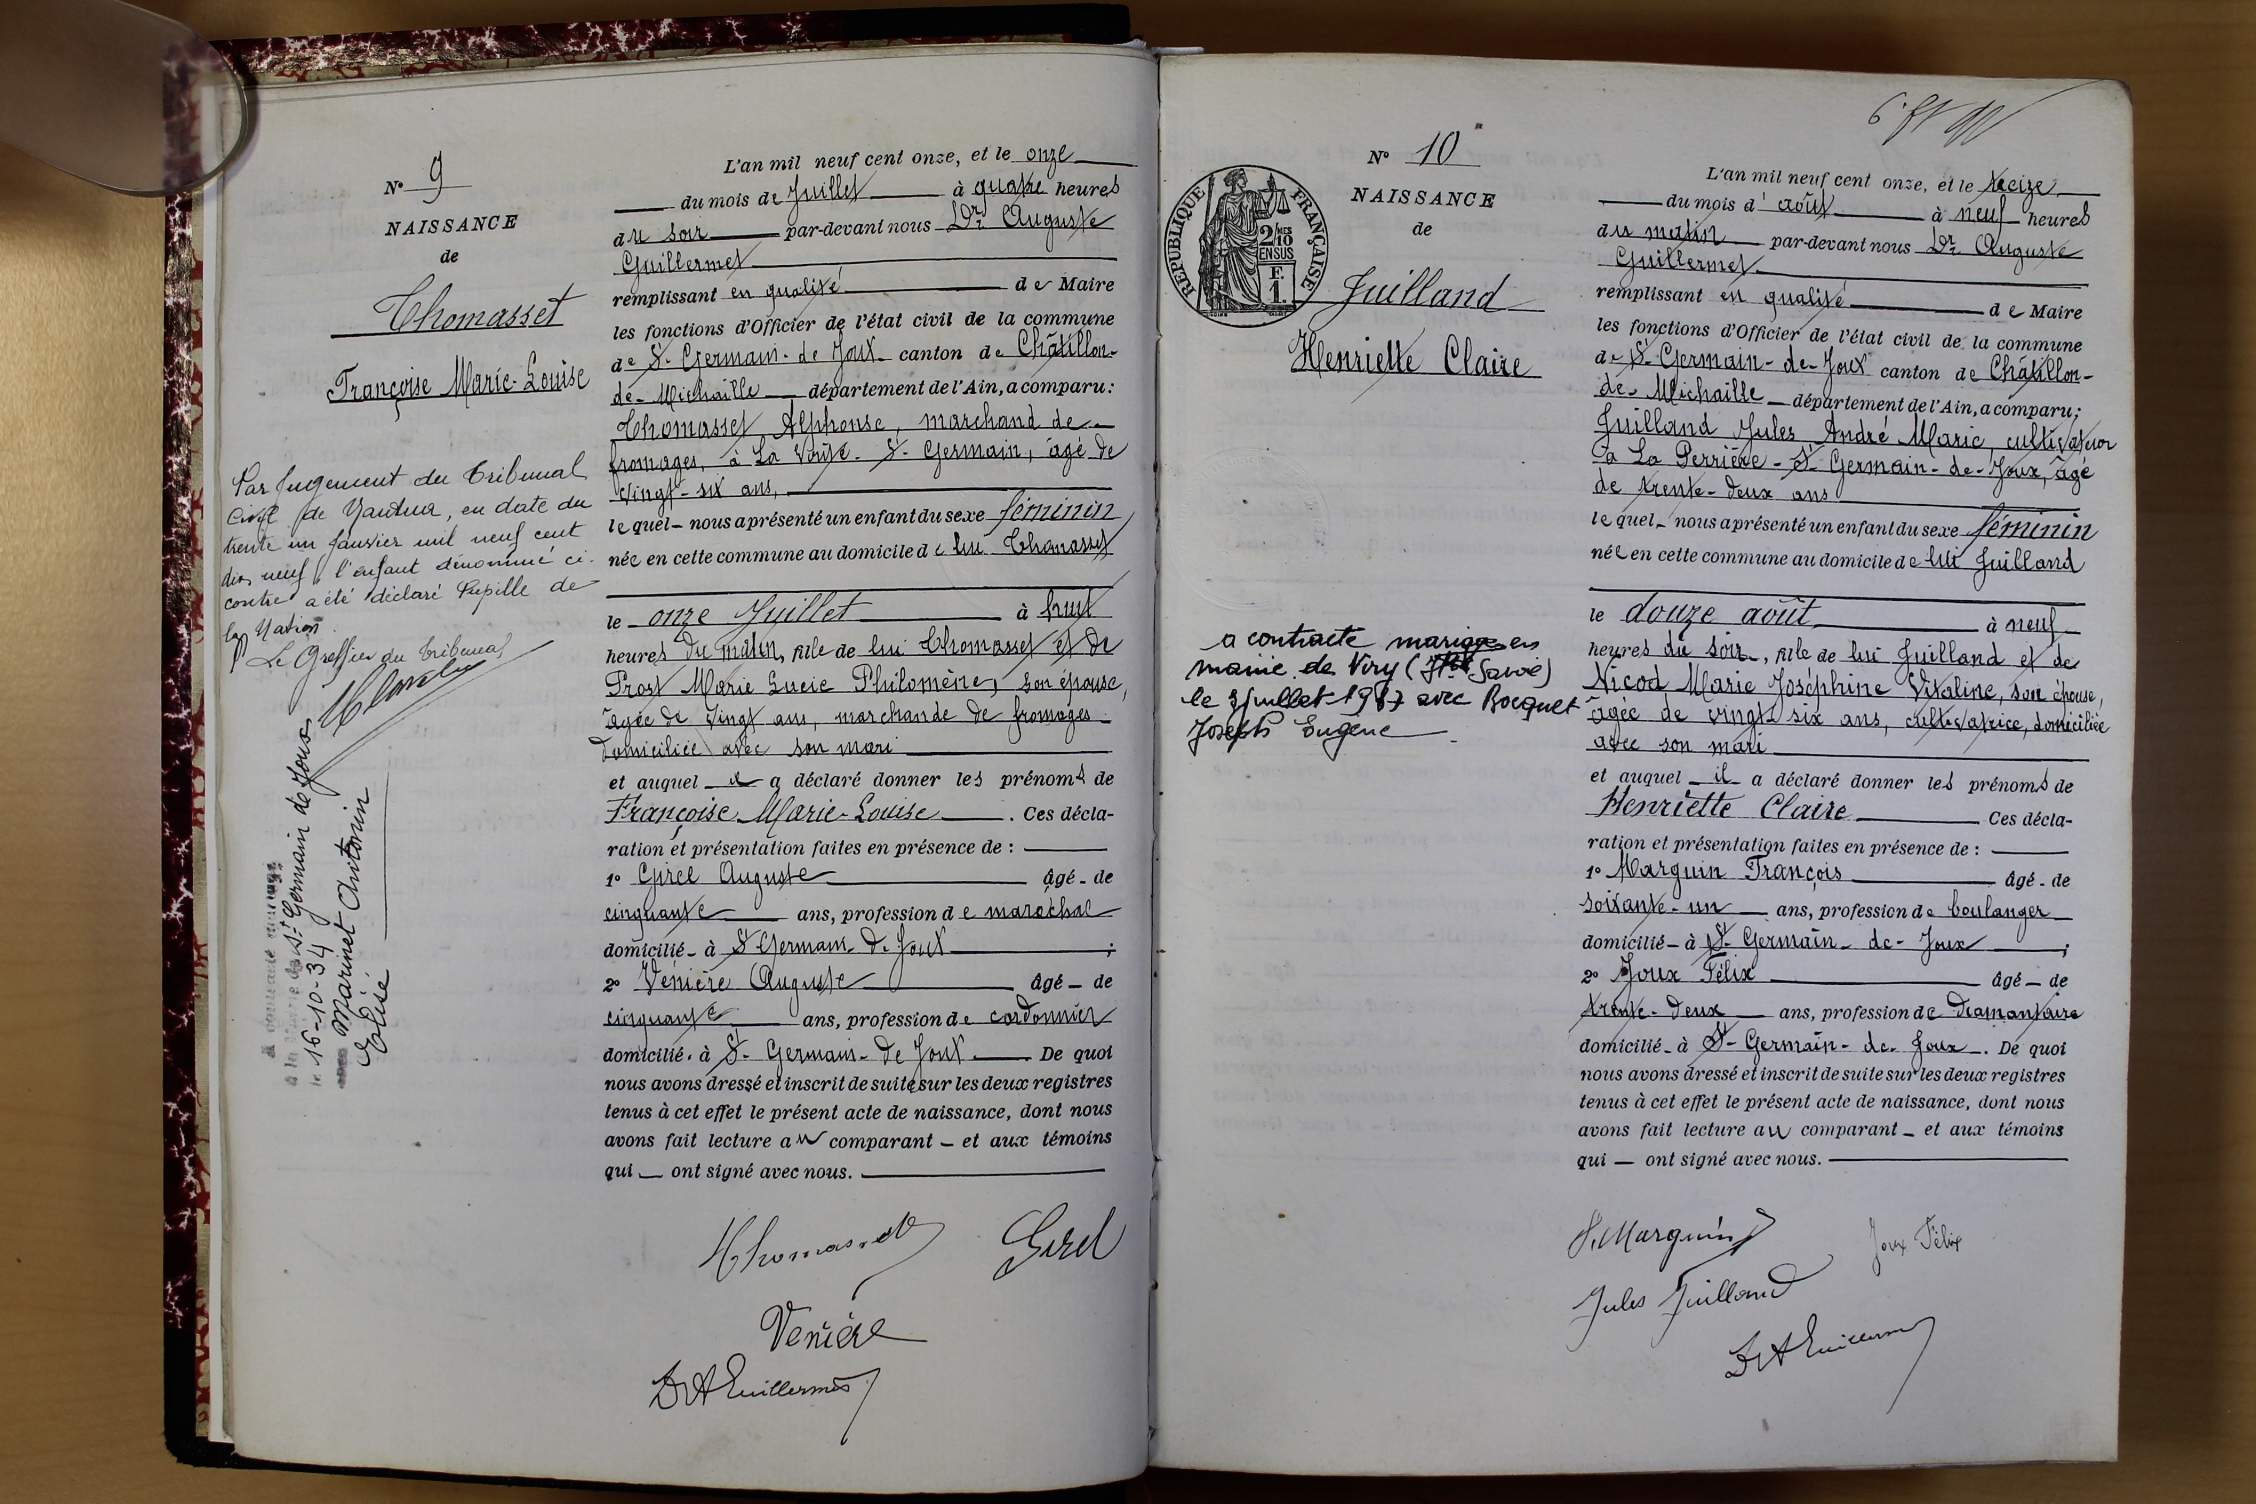 N° 9
NAISSANCE
de
Thomasset
Françoise Marie-Louise
Par jugement du Tribunal
Civil de Nantua, en date du
trente un Janvier mil neuf cent
dix neuf, l'enfant dénommé ci-
contre a été déclaré Pupille de
la Nation.
Le Greffier du Tribunal
A contracté mariage
à la Mairie de St Germain de Joux
le 16-10-34
avec Marinet Antonin
Elisé
L'an mil neuf cent onze, et le onze
du mois de Juillet à quatre heures
du soir par-devant nous Dr. Auguste
Guillermet
remplissant en qualité de Maire
les fonctions d'Officier de l'état civil de la commune
de St-Germain-de Joux canton de Châtillon-
de-Michaille département de l'Ain, a comparu:
Thomasset Alphonse, marchand de
fromages, à La Voûte-St-Germain, âgé de
vingt-six ans,
lequel nous a présenté un enfant du sexe féminin
née en cette commune au domicile de lui Thomasset
le onze Juillet à huit
heures du matin, fille de lui Thomasset et de
Prost Marie Lucie Philomène, son épouse,
âgée de vingt ans, marchande de fromages
domiciliée avec son mari
et auquel il a déclaré donner les prénoms de
Françoise Marie-Louise. Ces décla-
ration et présentation faites en présence de :
1° Girel Auguste âgé de
cinquante ans, profession de maréchal
domicilié à St-Germain-de-Joux ;
2° Venière Auguste âgé de
cinquante ans, profession de cordonnier
domicilié à St-Germain-de Joux. De quoi
nous avons dressé et inscrit de suite sur les deux registres
tenus à cet effet le présent acte de naissance, dont nous
avons fait lecture au comparant et aux témoins
qui ont signé avec nous.
Thomasset Girel
Venière
Dr A Guillermet
N° 10
NAISSANCE
de
RÉPUBLIQUE FRANÇAISE
2/10 MES
EN SUS
F.
1.
Juilland
Henriette Claire
a contracté mariage en
mairie de Viry (Hte Savoie)
avec Bocquet
Joseph Eugène
L'an mil neuf cent onze, et le treize
du mois d'août à neuf heures
du matin par-devant nous Dr. Auguste
Guillermet
remplissant en qualité de Maire
les fonctions d'Officier de l'état civil de la commune
de St-Germain-de-Joux canton de Châtillon-
de-Michaille département de l'Ain, a comparu;
Juilland Jules André Marie, cultivateur
à La Perrière-St-Germain-de-Joux, âgé
de trente-deux ans
lequel nous a présenté un enfant du sexe féminin
née en cette commune au domicile de lui Juilland
le douze août à neuf
heures du soir, fille de lui Juilland et de
Nicod Marie Joséphine Vitaline, son épouse,
âgée de vingt-six ans, cultivatrice, domiciliée
avec son mari
et auquel il a déclaré donner les prénoms de
Henriette Claire Ces décla-
ration et présentation faites en présence de :
1° Marguin François âgé de
soixante-un ans, profession de boulanger
domicilié à St-Germain-de-Joux ;
2° Joux Félix âgé de
trente-deux ans, profession de diamantaire
domicilié à St-Germain-de-Joux. De quoi
nous avons dressé et inscrit de suite sur les deux registres
tenus à cet effet le présent acte de naissance, dont nous
avons fait lecture au comparant et aux témoins
qui ont signé avec nous.
F. Marguin Joux Félix
Jules Juilland
Dr A Guillermet